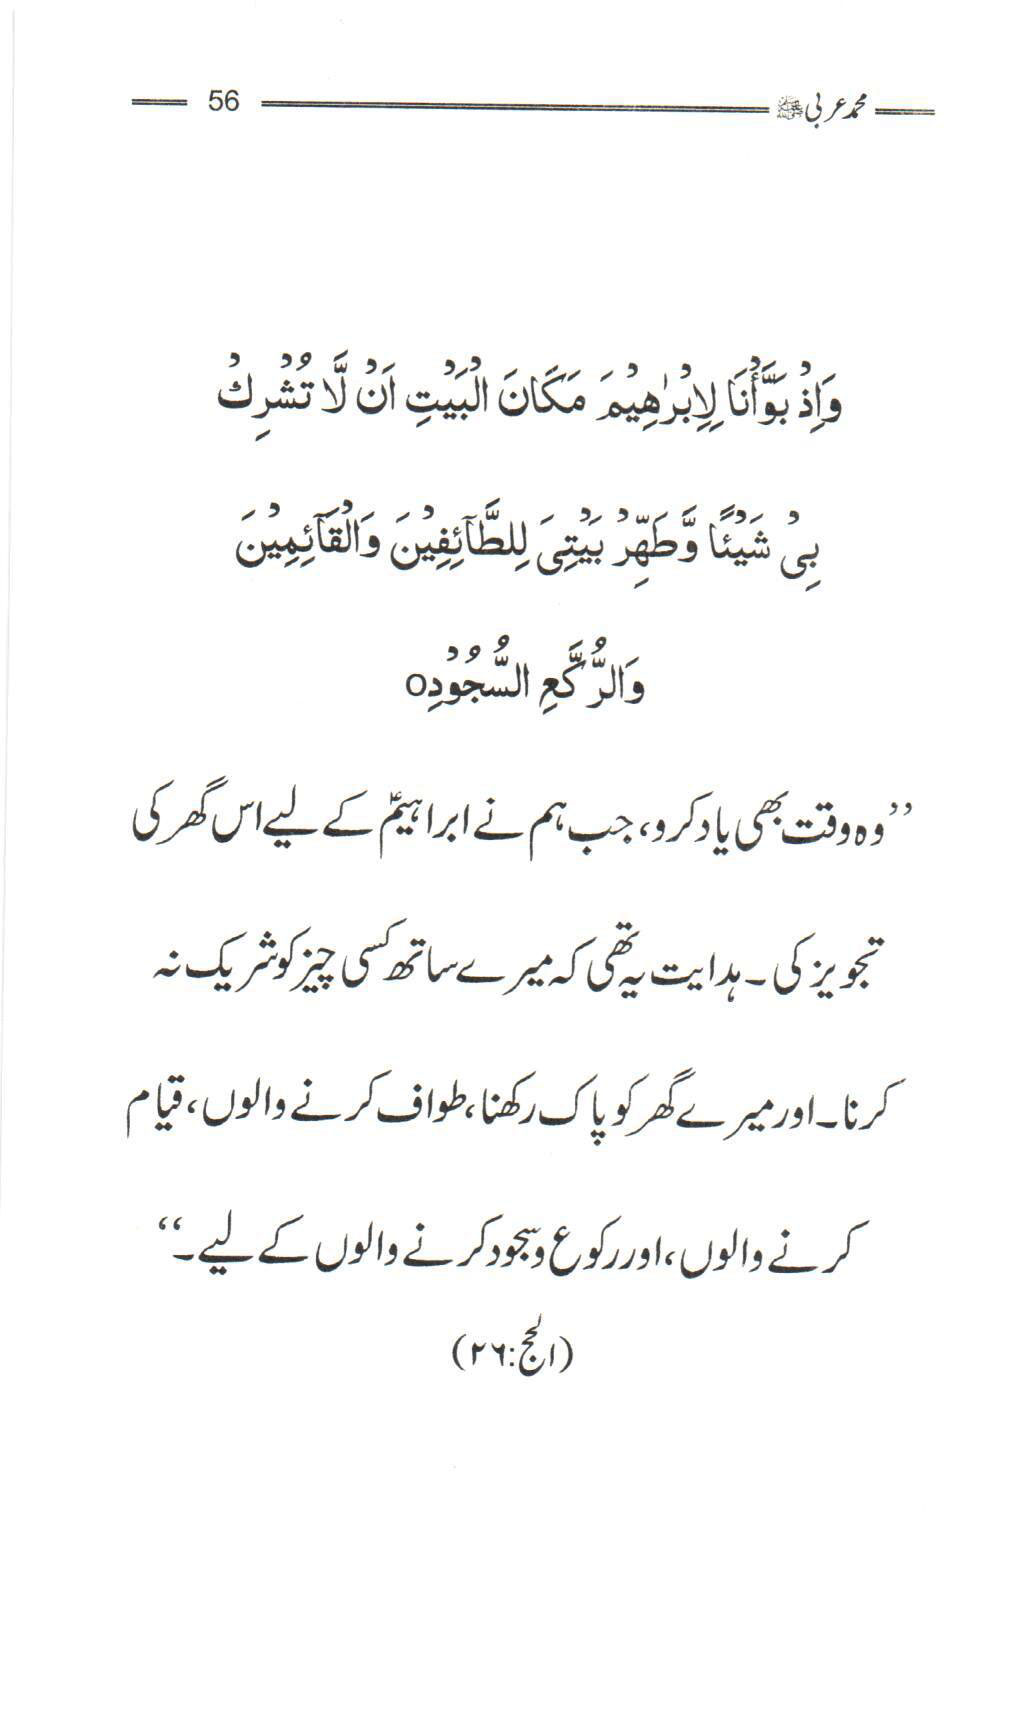 محمد عربی ﷺ 56
وَاِذْ بَوَّأْنَا لِاِبْرٰهِيْمَ مَكَانَ الْبَيْتِ اَنْ لَّا تُشْرِكْ
بِىْ شَيْئًا وَّطَهِّرْ بَيْتِىَ لِلطَّآئِفِيْنَ وَالْقَآئِمِيْنَ
وَالرُّكَّعِ السُّجُوْدِo
’’وہ وقت بھی یاد کرو، جب ہم نے ابراہیمؑ کے لیے اس گھر کی
تجویز کی۔ ہدایت یہ تھی کہ میرے ساتھ کسی چیز کو شریک نہ
کرنا۔ اور میرے گھر کو پاک رکھنا، طواف کرنے والوں، قیام
کرنے والوں، اور رکوع و سجود کرنے والوں کے لیے۔‘‘
(الحج:۲۶)